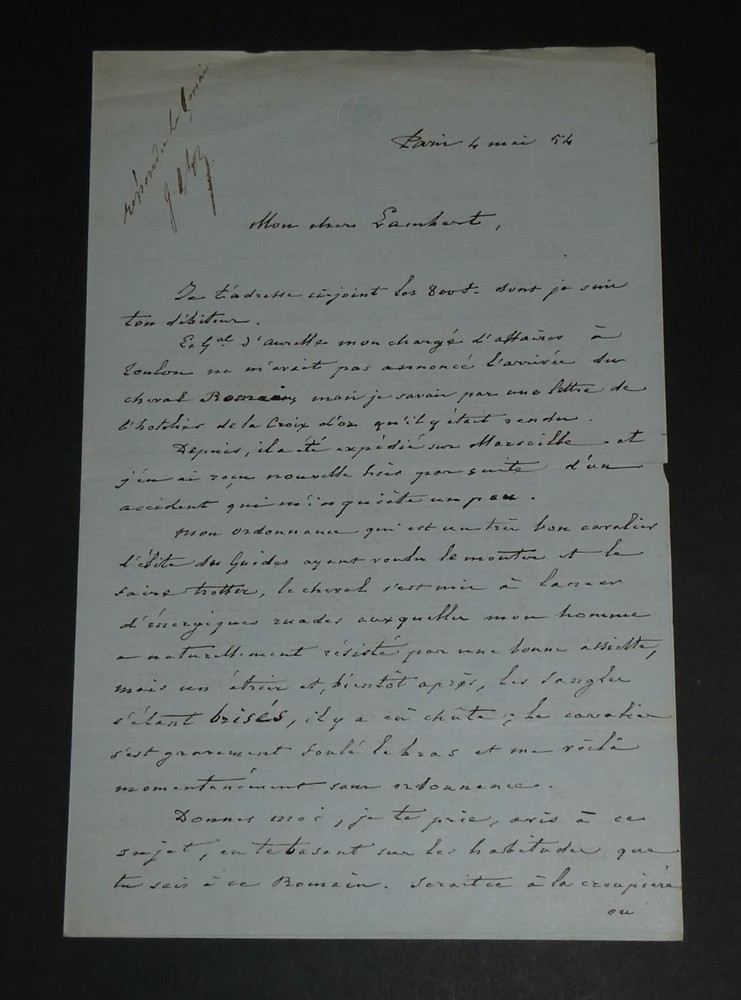 répondu le 9 mai
Paris 4 mai 54
Mon cher Lambert,
Je t'adresse ci-joint les 800f. dont je suis
ton débiteur.
Le Gal d'Aurelle mon chargé d'affaires à
Toulon ne m'avait pas annoncé l'arrivée du
cheval Romain, mais je savais par une lettre de
l'hôtelier de la Croix d'or qu'il y était rendu.
Depuis, il a été expédié sur Marseille et
j'en ai reçu nouvelle hier par suite d'un
accident qui m'inquiète un peu.
Mon ordonnance qui est un très bon cavalier
d'élite des Guides ayant voulu le monter et le
faire trotter, le cheval s'est mis à lancer
d'énergiques ruades auxquelles mon homme
a naturellement résisté par une bonne assiette,
mais un étrier et, bientôt après, les sangles
s'étant brisés, il y a eû chûte; le cavalier
s'est gravement foulé le bras et me voilà
momentanément sans ordonnance.
Donnes moi, je te prie, avis à ce
sujet, en te basant sur les habitudes que
tu sais à ce Romain. Serait ce à la croupière
ou